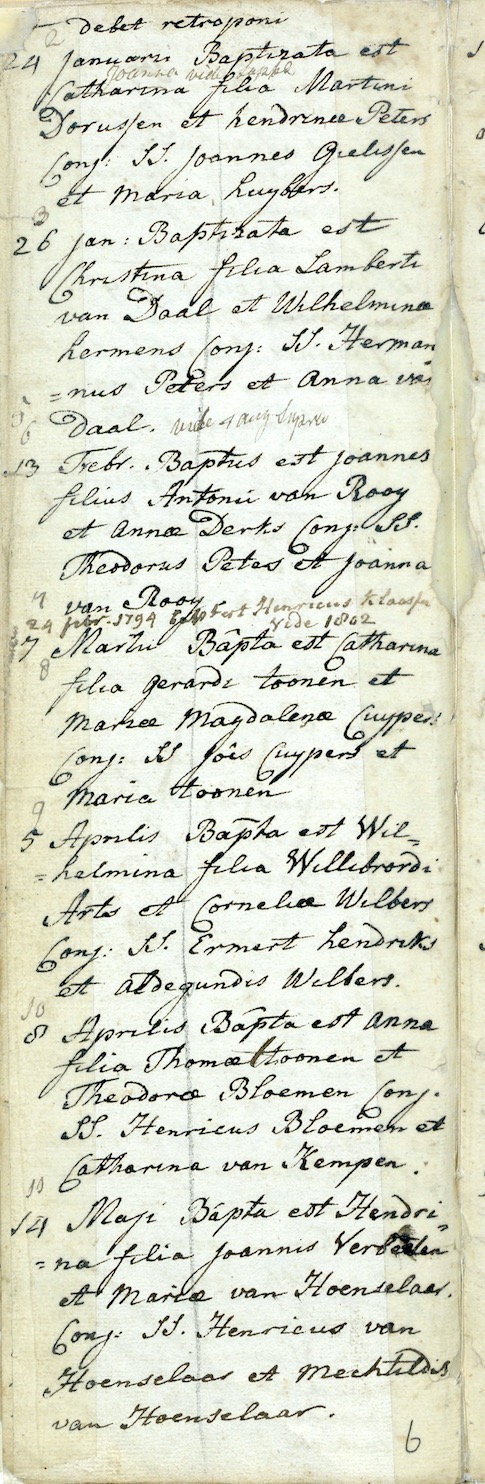 2 debet retroponi
24 Januarii Baptizata est
Joanna vide
Catharina filia Martini
Dorussen et hendrinæ Peters
Conj: SS. Joannes Gielissen
et Maria Luybers.
3
26 Jan: Baptizata est
Christina filia Lamberti
van Daal et Wilhelminæ
hermens Conj: SS. Herman
=nus Peters et Anna van
5
6 Daal. vide 4 aug supra
13 Febr. Baptus est Joannes
filius Antonii van Rooy
et Annæ Derks Conj: SS.
Theodorus Peters et Joanna
7 van Rooy
24 febr. 1794 Henricus Klaassen
Vide 1802
7 Martii Bâpta est Catharina
8
filia Gerardi toonen et
Mariæ Magdalenæ Cuypers
Conj: SS Jôis Cuypers et
Maria toonen
9
5 Aprilis Bapta est Wil=
=helmina filia Willibrordi
Arts et Corneliæ Wilbers
Conj: SS. Ermert hendriks
et Aldegundis Wilbers.
10
8 Aprilis Bâpta est Anna
filia Thomæ toonen et
Theodoræ Bloemen Conj.
SS. Henricus Bloemen et
Catharina van Kempen.
11
14 Maji Bâpta est Hendri=
=na filia Joannis Verbeeten
et Mariæ van Hoenselaar.
Conj: SS. Henricus van
Hoenselaar et Mechtildis
van Hoenselaar.
6